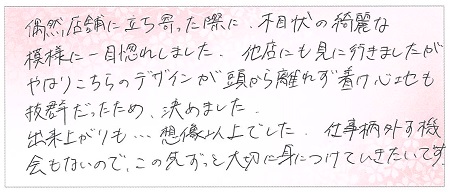 偶然店舗に立ち寄った際に、木目状の綺麗な
模様に一目惚れしました。他店にも見に行きましたが
やはりこちらのデザインが頭から離れず着け心地も
抜群だったため、決めました。
出来上がりも…想像以上でした。仕事柄外す機
会もないので、この先ずっと大切に身につけていきたいです